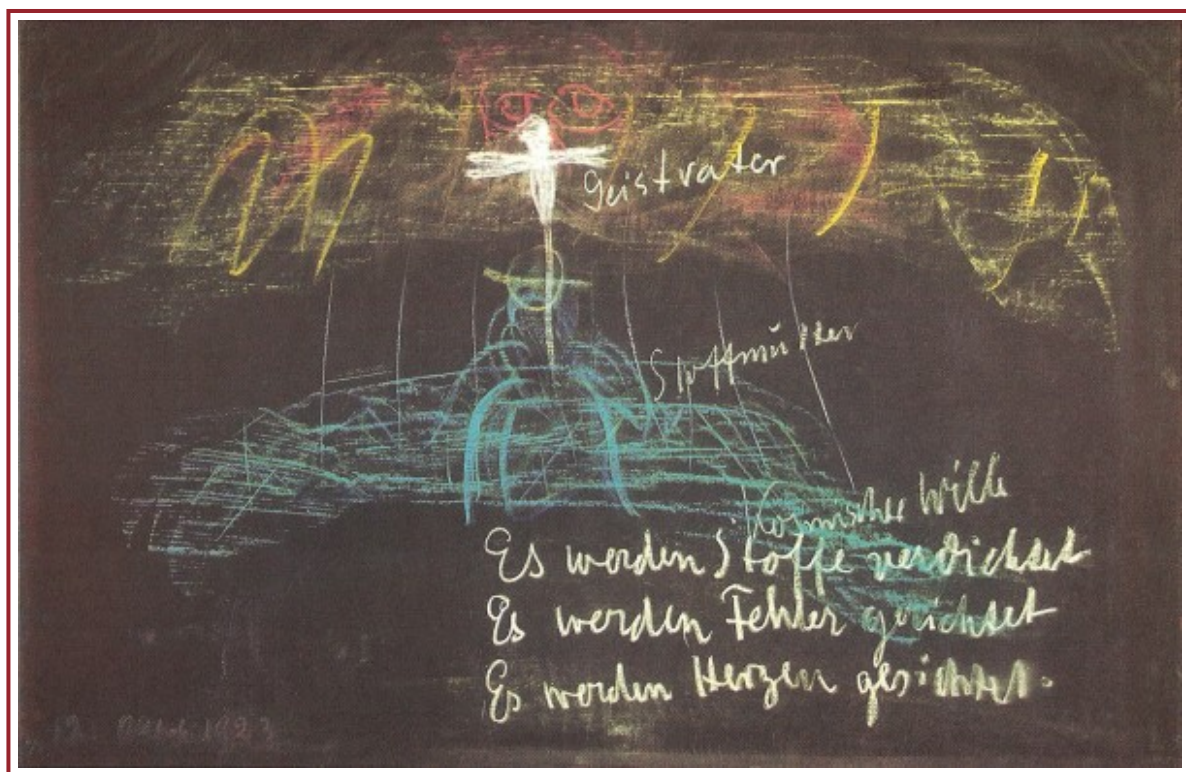 Geistvater
Stoffmutter
Kosmischer Wille
Es werden Stoffe verdichtet
Es werden Fehler gerichtet
Es werden Herzen gesichtet.
12. Oktob. 1923